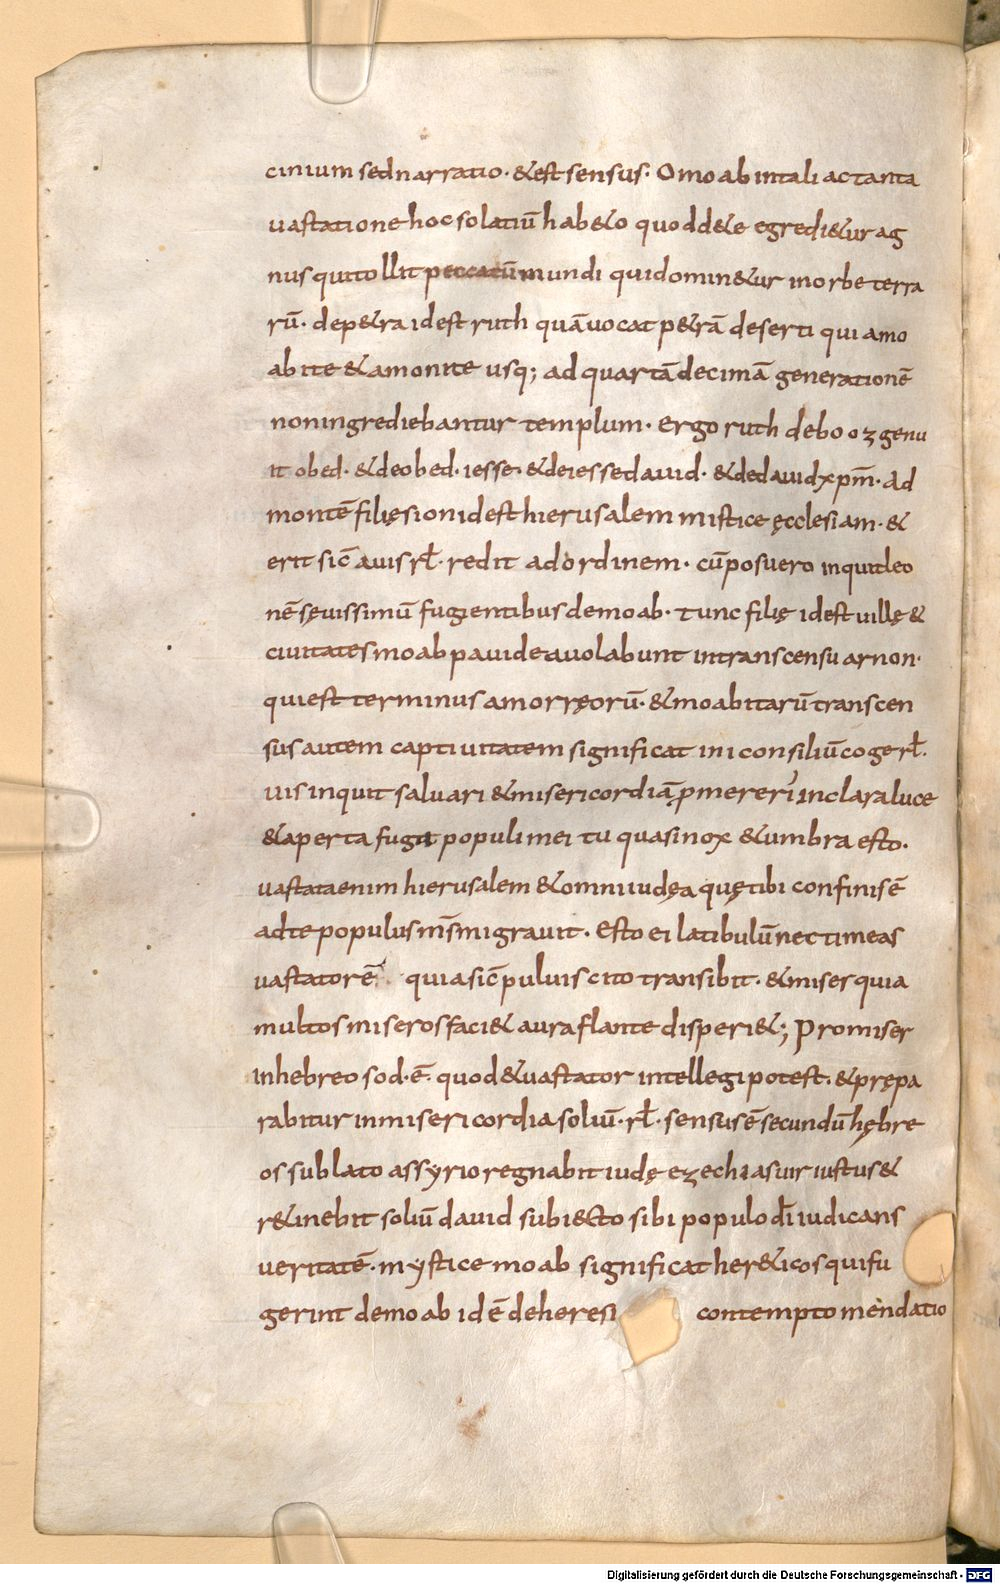 cinium sed narratio· & est sensus· O moab in tali ac tanta
uastatione hoc solatiū hab&o quod de te egredi&ur ag
nus qui tollit peccatū mundi qui domin&ur in orbe terra
rū· de p&ra id est ruth quā uocat p&rā deserti qui amo
abite & amonite usq; ad quartā decimā generationē
non ingrediebantur templum· ergo ruth de booz genu
it obed· & de obed· iesse· & de iesse dauid· & de dauid xp̄m· ad
montē filię sion id est hierusalem mistice ęcclesiam· &
erit sic̄ auis rł· redit ad ordinem· cū posuero inquit leo
nē sęuissimū fugientibus de moab· tunc filię id est uillę &
ciuitates moab pauide auolabunt in transcensu arnon·
qui est terminus amorręorū· & moabitarū transcen
sus autem captiuitatem significat ini consiliū coge rł·
uis inquit saluari & misericordiā ꝓmereri in clara luce
& aperta fuga populi mei tu quasi nox & umbra esto·
uastata enim hierusalem & omni iudęa quę tibi confinis ē
ad te populus m̄s migrauit· Esto ei latibulū nec timeas
uastatorē quia sic̄ puluis cito transibit· & miser quia
multos miseros faci& aura flante disperi&; Pro miser
in hebreo sod· ē· quod & uastator intellegi potest· & prępa
rabitur in misericordia soliū· rł· sensus ē secundū hębre
os sublato assyrio regnabit iudę ezechias uir iustus &
r&inebit soliū dauid subiecto sibi populo dī iudicans
ueritatē· mystice moab significat her&icos qui fu
gerint de moab id ē de heresi contempto mendatio
Digitalisierung gefördert durch die Deutsche Forschungsgemeinschaft - DFG